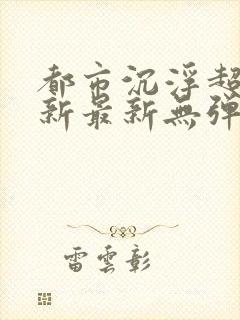 都市沉浮超
新最新無弹
雷雲彰